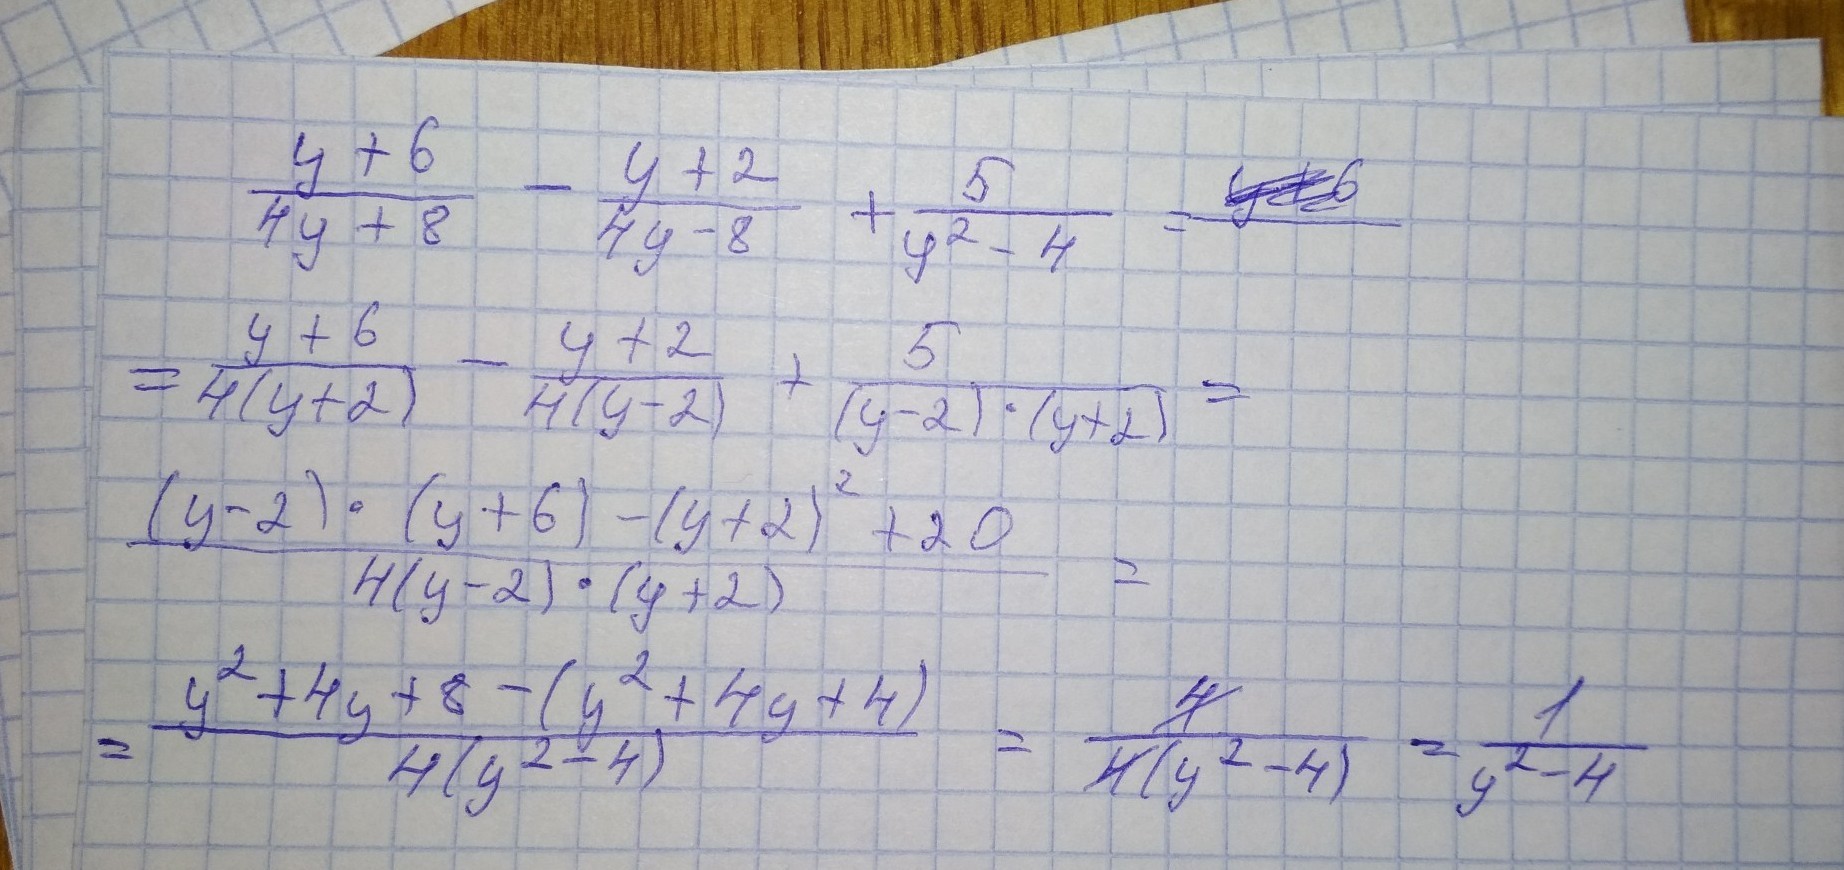 (y+6)/(4y+8) - (y+2)/(4y-8) + 5/(y²-4) =
= (y+6)/(4(y+2)) - (y+2)/(4(y-2)) + 5/((y-2)·(y+2)) =
((y-2)·(y+6)-(y+2)²+20)/(4(y-2)·(y+2)) =
= (y²+4y+8-(y²+4y+4))/(4(y²-4)) = 4/(4(y²-4)) = 1/(y²-4)